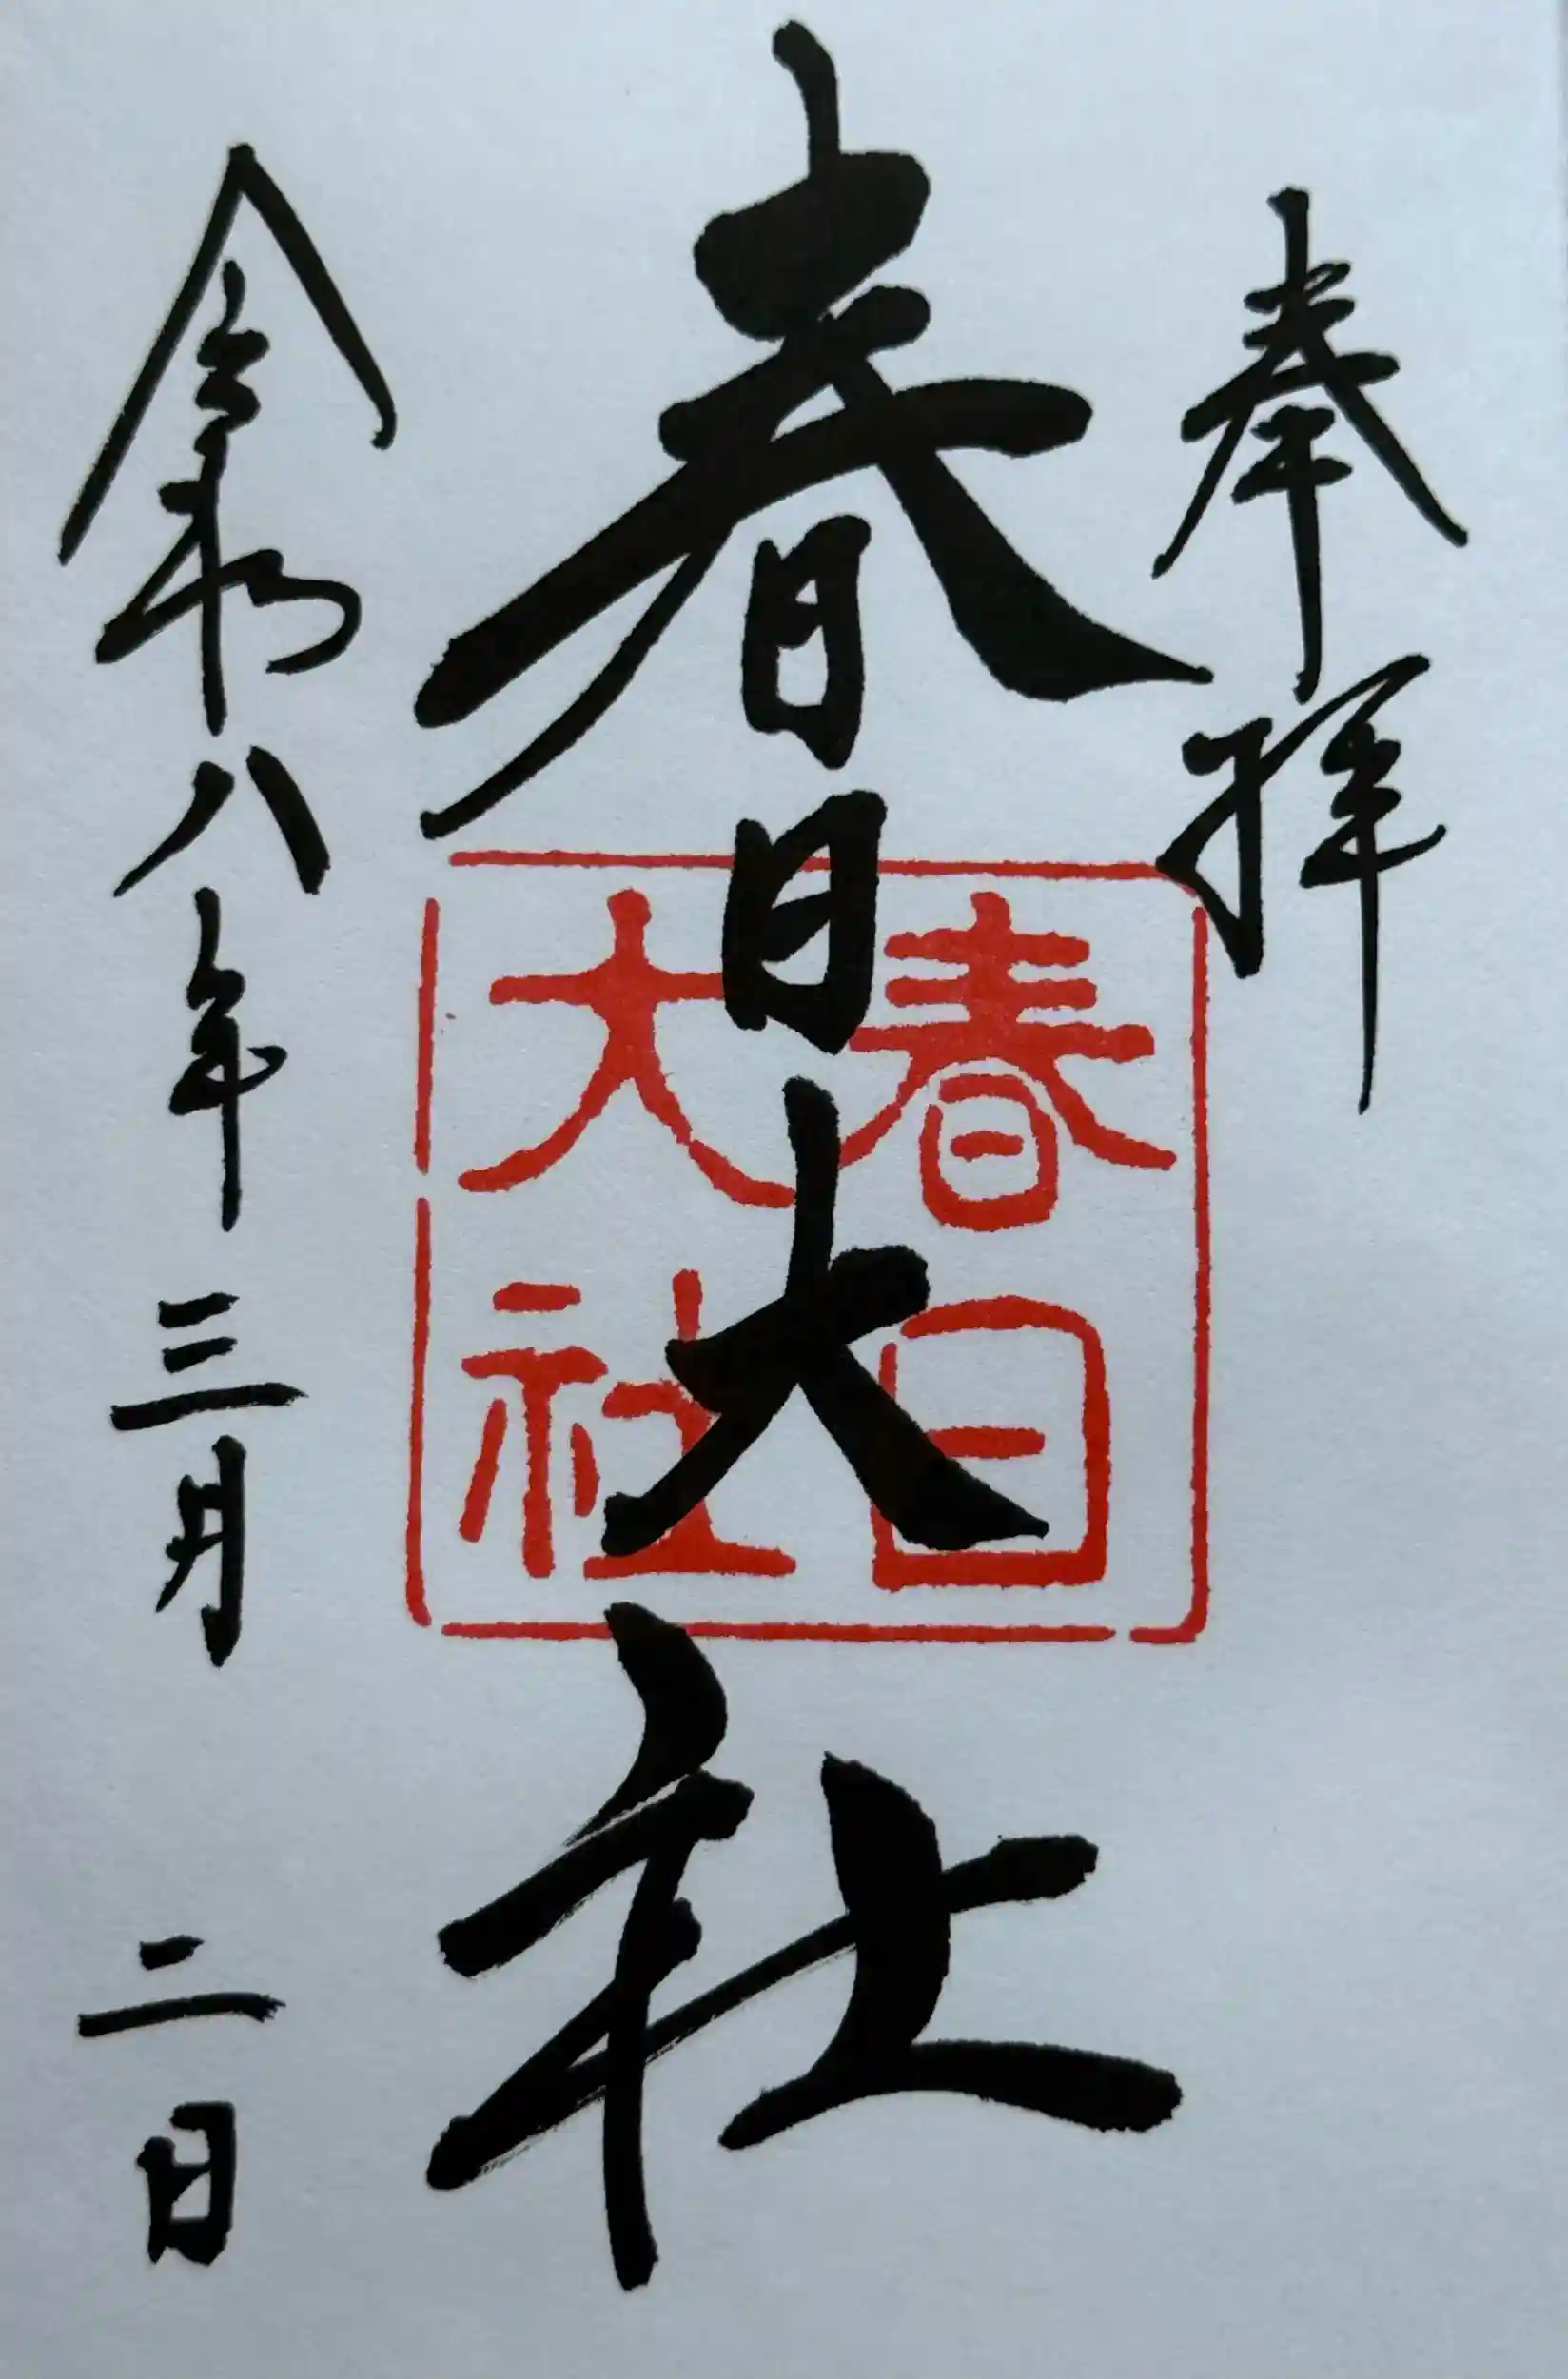 奉拝
春日大社
春日
大社
令和八年三月二日